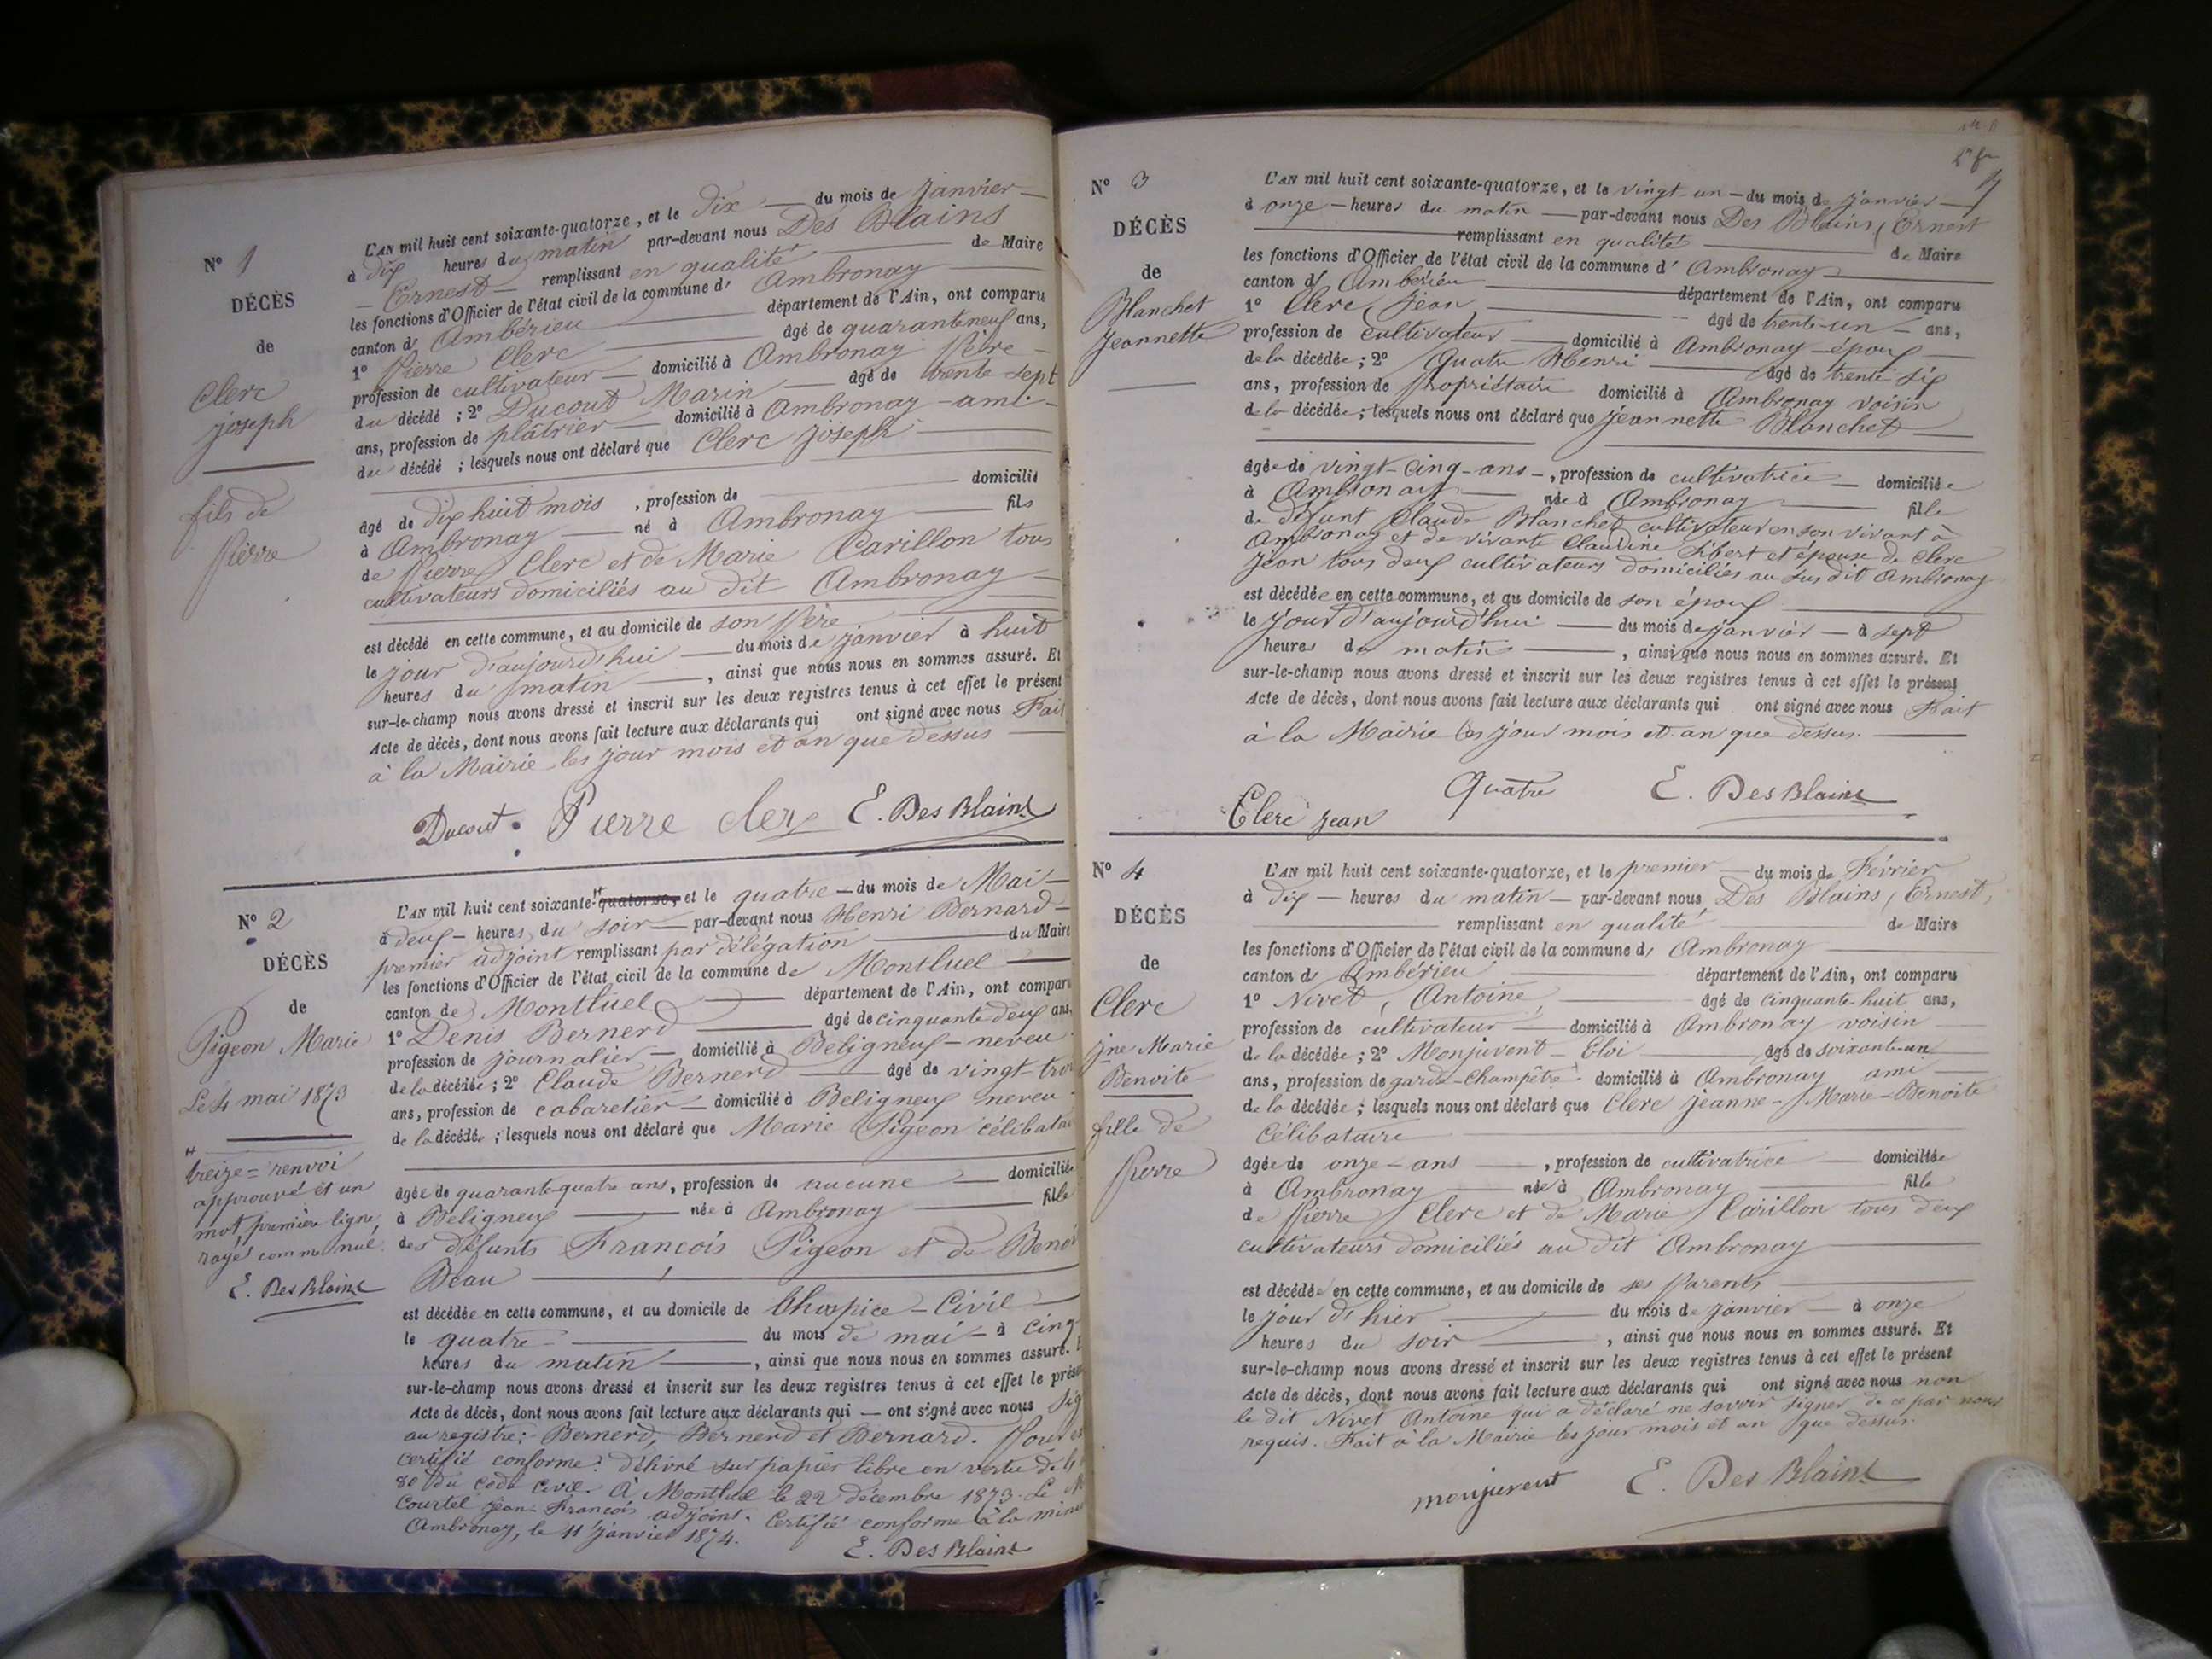 N° 1
DÉCÈS
de
Clerc
joseph
fils de
Pierre
L'AN mil huit cent soixante-quatorze, et le dix du mois de janvier
à dix heures du matin par-devant nous Des Blains
Ernest remplissant en qualité de Maire
les fonctions d'Officier de l'état civil de la commune d' Ambronay
canton d' Ambérieu département de l'Ain, ont comparu
1° Pierre Clerc âgé de quarante neuf ans,
profession de cultivateur domicilié à Ambronay Père
du décédé ; 2° Ducout Marin âgé de trente-sept
ans, profession de plâtrier domicilié à Ambronay - ami -
du décédé ; lesquels nous ont déclaré que Clerc Joseph
âgé de dix huit mois , profession de domicilié
à Ambronay né à Ambronay fils
de Pierre Clerc et de Marie Carillon tous
cultivateurs domiciliés au dit Ambronay
est décédé en cette commune, et au domicile de son Père
le jour d'aujourd'hui du mois de janvier à huit
heures du matin , ainsi que nous nous en sommes assuré. Et
sur-le-champ nous avons dressé et inscrit sur les deux registres tenus à cet effet le présent
Acte de décès, dont nous avons fait lecture aux déclarants qui ont signé avec nous Fait
à la Mairie les jour mois et an que dessus
Ducout Pierre clerc E. Des Blains
N° 2
DÉCÈS
de
Pigeon Marie
Le 4 mai 1873
treize = renvoi
approuvé et un
mot, première ligne,
rayé comme nul.
E. Des Blains
L'AN mil huit cent soixante-quatorze, et le quatre du mois de Mai
à deux heures du soir par-devant nous Henri Bernard
premier adjoint remplissant par délégation du Maire
les fonctions d'Officier de l'état civil de la commune de Montluel
canton de Montluel département de l'Ain, ont comparu
1° Denis Bernerd âgé de cinquante deux ans,
profession de journalier domicilié à Beligneux - neveu
de la décédée ; 2° Claude Bernerd âgé de vingt-trois
ans, profession de cabaretier domicilié à Beligneux neveu
de la décédée ; lesquels nous ont déclaré que Marie Pigeon célibatai
âgée de quarante quatre ans, profession de aucune domiciliée
à Beligneux née à Ambronay fille
des défunts François Pigeon et de Benoi
Beau
est décédée en cette commune, et au domicile de l'hospice - Civil
le quatre du mois de mai à cinq
heures du matin , ainsi que nous nous en sommes assuré. E
sur-le-champ nous avons dressé et inscrit sur les deux registres tenus à cet effet le prése
Acte de décès, dont nous avons fait lecture aux déclarants qui ont signé avec nous Sig
au registre : Bernerd, Bernerd et Bernard. Pour ex
certifié conforme. délivré sur papier libre en vertu de
80 du Code Civil. À Montluel le 22 décembre 1873. Le M
Courtel Jean-François adjoint. Certifié conforme à la minu
Ambronay, le 11 janvier 1874.
E. Des Blains
N° 3
DÉCÈS
de
Blanchet
Jeannette
L'AN mil huit cent soixante-quatorze, et le vingt-un du mois de janvier
à onze heures du matin par-devant nous Des Blains, Ernest
remplissant en qualité de Maire
les fonctions d'Officier de l'état civil de la commune d' Ambronay
canton d' Ambérieu département de l'Ain, ont comparu
1° Clerc, Jean âgé de trente-un ans,
profession de cultivateur domicilié à Ambronay époux
de la décédée ; 2° Quatre Henri âgé de trente six
ans, profession de Propriétaire domicilié à Ambronay voisin
de la décédée ; lesquels nous ont déclaré que Jeannette Blanchet
âgée de vingt-cinq-ans , profession de cultivatrice domiciliée
à Ambronay née à Ambronay fille
de défunt Claude Blanchet cultivateur en son vivant à
Ambronay et de vivante Claudine Libert et épouse de Clerc
Jean tous deux cultivateurs domiciliés au sus dit Ambronay
est décédée en cette commune, et au domicile de son époux
le jour d'aujourd'hui du mois de janvier à sept
heures du matin , ainsi que nous nous en sommes assuré. Et
sur-le-champ nous avons dressé et inscrit sur les deux registres tenus à cet effet le présent
Acte de décès, dont nous avons fait lecture aux déclarants qui ont signé avec nous Fait
à la Mairie les jour mois et an que dessus.
Clerc Jean Quatre E. Des Blains
N° 4
DÉCÈS
de
Clerc
jne Marie
Benoite
fille de
Pierre
L'AN mil huit cent soixante-quatorze, et le premier du mois de Février
à dix heures du matin par-devant nous Des Blains, Ernest,
remplissant en qualité de Maire
les fonctions d'Officier de l'état civil de la commune d' Ambronay
canton d' Ambérieu département de l'Ain, ont comparu
1° Nivet, Antoine âgé de cinquante-huit ans,
profession de cultivateur domicilié à Ambronay voisin
de la décédée ; 2° Monjuvent - Eloi âgé de soixante-un
ans, profession de garde-Champêtre domicilié à Ambronay ami
de la décédée ; lesquels nous ont déclaré que Clerc Jeanne-Marie-Benoite
Célibataire
âgée de onze-ans , profession de cultivatrice domiciliée
à Ambronay née à Ambronay fille
de Pierre Clerc et de Marie Carillon tous deux
cultivateurs domiciliés au dit Ambronay
est décédée en cette commune, et au domicile de ses Parents
le jour d'hier du mois de janvier à onze
heures du soir , ainsi que nous nous en sommes assuré. Et
sur-le-champ nous avons dressé et inscrit sur les deux registres tenus à cet effet le présent
Acte de décès, dont nous avons fait lecture aux déclarants qui ont signé avec nous non
le dit Nivet Antoine qui a déclaré ne savoir signer de ce par nous
requis. Fait à la Mairie les jour mois et an que dessus.
monjuvent E. Des Blains